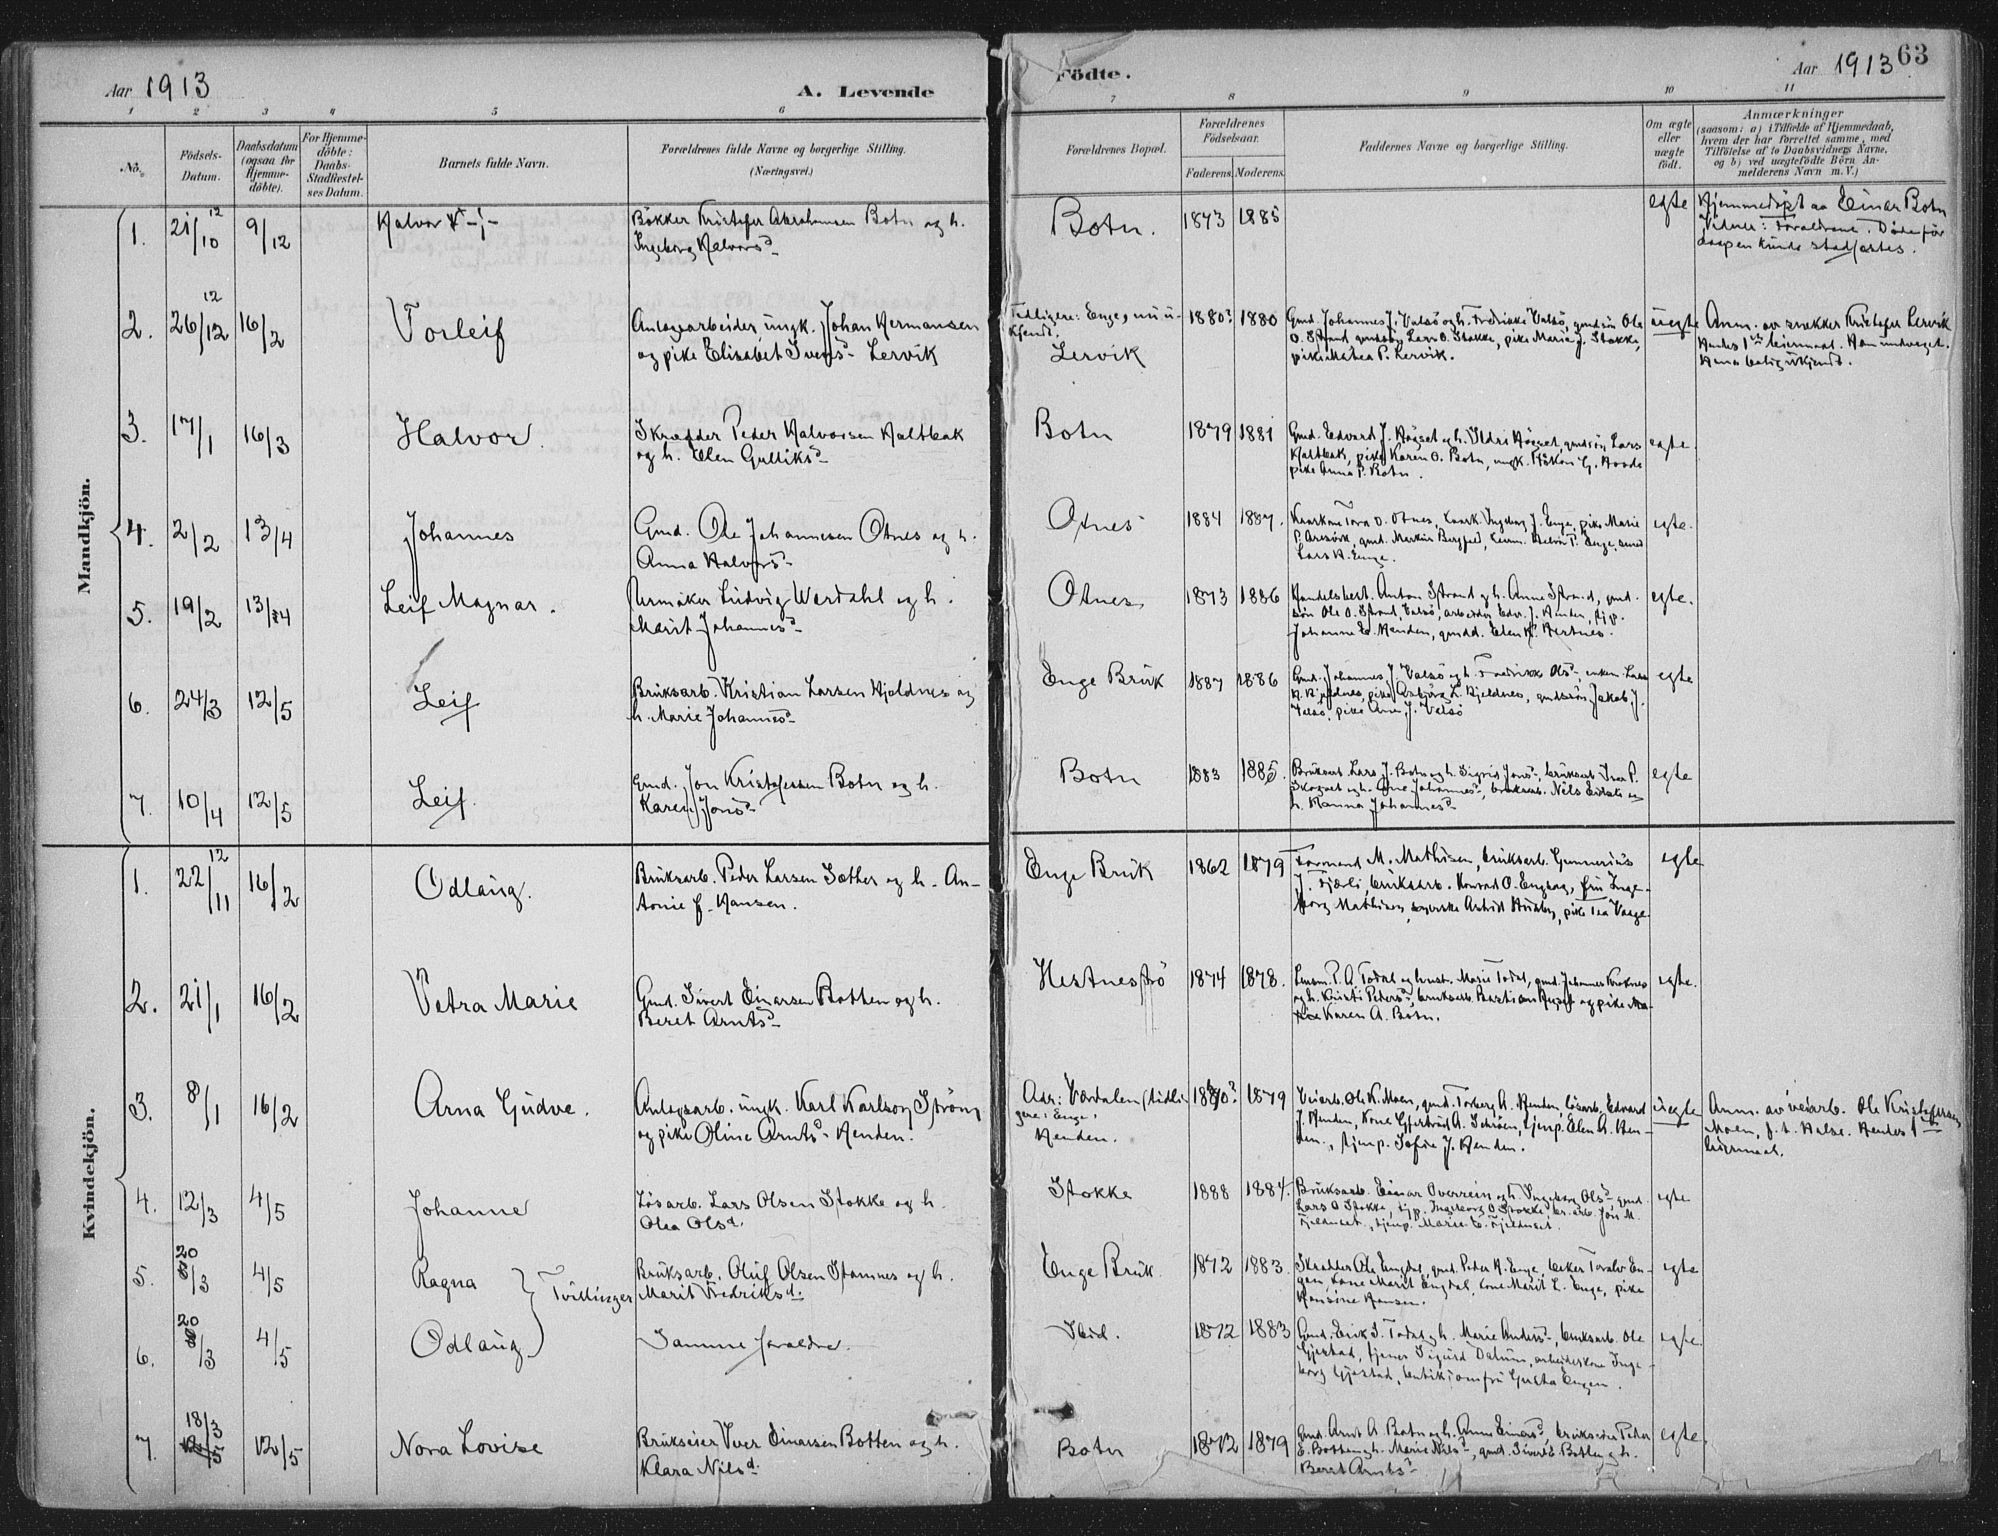 Aar 1913
A. Levende
Födte.
Aar 1913
63
1 2 3 4 5 6 7 8 9 10 11
No.
Födsels-
Datum.
Daabsdatum
(ogsaa for
Hjemme-
döbte).
For Hjemme-
döbte:
Daabs-
Stadfæstel-
ses Datum.
Barnets fulde Navn.
Forældrenes fulde Navne og borgerlige Stilling.
(Næringsvei.)
Forældrenes Bopæl.
Forældrenes
Födselsaar.
Faderens. Moderens.
Faddernes Navne og borgerlige Stilling.
Om ægte
eller
uægte
födt.
Anmærkninger
(saasom: a) i Tilfælde af Hjemmedaab,
hvem der har forrettet samme, med
Tilföielse af to Daabsvidners Navne,
og b) ved uægtefödte Börn An-
melderens Navn m. V.)
Mandkjön.
1. 21/10 12 9/12 Halvor
Bökker Kristofer Abrahamsen Botn og h.
Ingeborg Halvorsd
Botn. 1873 1885
egte
Hjemmedöpt av Einar Botn
Vidner: Foraldrene. Döde för
daapen kunde stadfæstes.
2. 26/12 12 16/2 Torleif
Anlægsarbeider ungk. Johan Hermansen
og pike Elisabet Iversd Lervik
Tidligere: Enge, nu u-
kjendt.
Lervik
1880? 1880
Gmd. Johannes J. Valsö og h. Fredrikke Valsö, gmdsön Ole
O. Strand gmdsön Lars O. Stokke, pike Marie J. Stokke,
pike Mahea P. Lervik.
uegte
Anm. av snekker Kristofer Lervik
Hendes 1ste leiermaal.
3. 17/1 16/3 Halvor.
Skrædder Peder Halvorsen Haltbak
og h. Elen Gulliksd
Botn 1879 1881
Gmd. Edvard J. Högset og h. Ildri Högset, gmdsön Lars
Haltbak, pike Karen O. Botn, ungk. Håkon G.
pike Anna P. Botn.
egte.
4. 2/2 13/4 Johannes
Gmd. Ole Johannesen Otnes og h.
Anna Halvorsd
Otnes 1884 1887.
Kaarkone Tora O. Otnes, kaark. Ingeborg J. Enge, pike Marie
Lars H. Enge.
egte.
5. 19/2 13/4 Leif Magnar.
Urmaker Ludvig Werdahl og h.
Marit Johannesd
Otnes 1873 1886
Handelsbest. Anton Strand og h. Anne Strand, gmd-
sön Ole O. Strand, Valsö, arbeider Edv. J. Henden, tjp.
Johanne E. Henden, gmdd. Elen K. Hestnes.
egte.
6. 24/3 12/5 Leif
Bruksarb. Kristian Larsen Hjeldnes og
h. Marie Johannesd
Enge Bruk 1887 1886
Gmd. Johannes J. Valsö og h. Fredrikke Olsd, enkem. Lars
K. Hjeldnes, pike Asbjörg L. Hjeldnes, gmdssön Jakob J.
Valsö, pike Ane J. Valsö
egte
7. 10/4 12/5 Leif.
Gmd. Jon Kristofersen Botn og h.
Karen Jonsd
Botn 1883 1885.
Bruksarb. Lars J. Botn og h. Sigrid Jonsd, bruksarb. Iver P.
Skogset og h. Ane Johannesd, bruksarb. Nils
h. Hanna Johannesd
egte
Kvindekjön.
1. 22/11 12 16/2 Odlaug.
Bruksarb. Peder Larsen Sæther og h. An-
tonie f. Hansen.
Enge Bruk 1862 1879
Formand M. Mathisen, bruksarb. Gunnerius
J. Fjærli, bruksarb. Konrad O. Engdag, fru Inge-
borg Mathisen, syerske Astrid Husby, pike Tea Vaage
egte
2. 21/1 16/2 Petra Marie
Gmd. Sivert Einarsen Botten og h.
Beret Arntsd
Hestnesfrö 1874 1878.
Lensm. P. A. Todal og hust. Marie Todal, gmd. Johannes Kroknes
og h. Kristi Pedersd, bruksarb. Bastian Aspet og pike Ma-
rie Karen A. Botn.
egte.
3. 8/1 16/2 Arna Gudve.
Anlægsarb. ungk. Karl Karlsen Ström
og pike Oline Arntsd Henden.
Adr: Værdalen (tidli-
gere: Enge)
Henden.
1879
Veiarb. Ole K. Moen, gmd. Torberg A. Henden, lösarb. Edvard
J. Henden, kone Gjertrud A. Schröen, tjenp. Elen A. Hen-
den, tjenp. Sofie J. Henden.
uegte
Anm. av veiarb. Ole Kristofersen
Moen, f. t. Halse. Hendes 1ste
leiermaal.
4. 12/3 4/5 Johanne
Lösarb. Lars Olsen Stokke og h.
Olea Olsd.
Stokke 1888 1884.
Bruksarb. Einar Overrein og h. Ingeborg Olsd, gmd.
Lars O Stokke, tjp. Ingeborg O Stokke, br.arb. Jon M.
Fjeldnset, tjenp. Marie E. Fjeldnset.
egte
5. 20/3 4/5 Ragna
Tvillinger
Bruksarb. Oluf Olsen Stamnes og h.
Marit Fredriksd.
Enge Bruk 1872 1883.
Skrædder Ole Engdal, gmd. Peder H. Enge, bæker Toralv En-
gen, kone Marit Engdal, kone Marit L. Enge, pike
Hansine Hansen.
egte
6. 20/3 4/5 Odlaug
Samme foraldre.
Ibid. 1872 1883
Gmd. Erik S. Todal og h. Marie Andersd, bruksarb. Ole
Gjestad, tjener Sigurd Dalum, arbeiderkone Inge-
borg Gjestad, butikjomfru Gusta Engen.
egte
7. 18/3 12/5 Nora Lovise
Brukseier Iver Einarsen Botten og h.
Klara Nilsd.
Botn 1872 1879
Gmd. Arnt A. Botn og h. Anne Einarsd, brukseier Peder
E. Botten og h. Marie Nilsd, gmd. Sivert E. Botten og h.
Beret Arntsd
egte